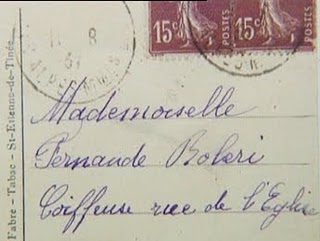 15c POSTES 15c POSTES
8
Mademoiselle
Fernande Boleri
Coiffeuse rue de l'Eglise
Fabre – Tabac – St-Etienne-de-Tinée